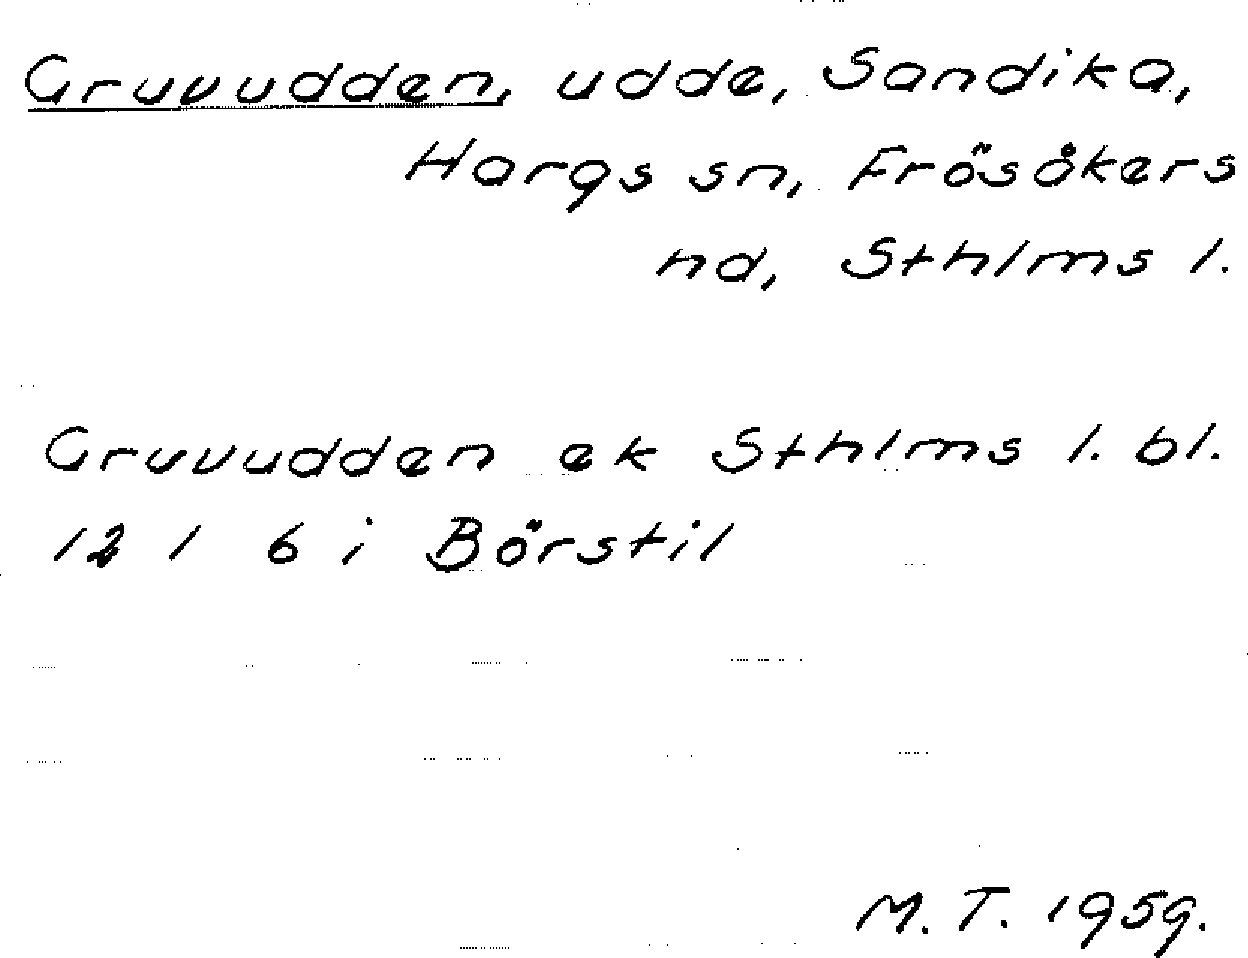 Gruvudden, udde, Sandika,
Hargs sn, Frösåkers
hd, Sthlms l.
Gruvudden ek Sthlms l. bl.
12 1 6 i Börstil
M. T. 1959.